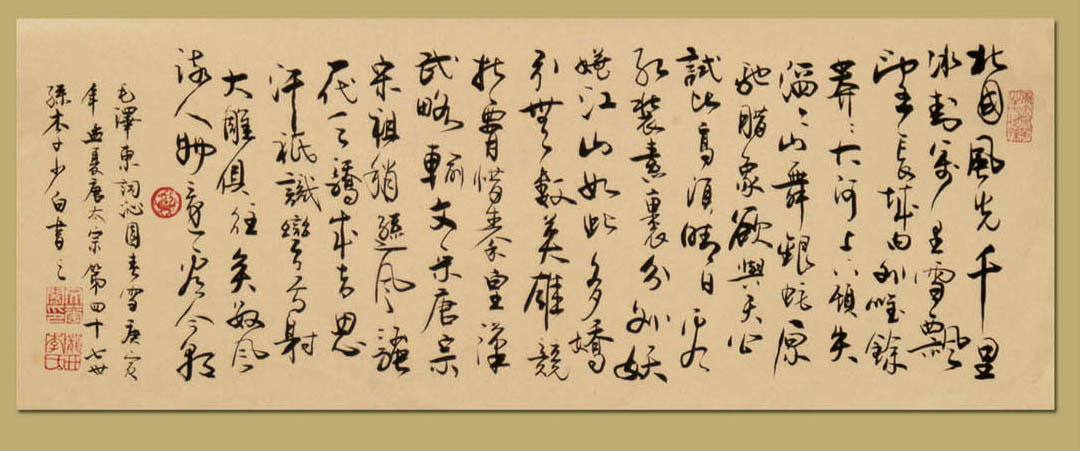 北國風光千里
冰封萬里雪飄
望長城內外唯餘
莽〻大河上下頓失
滔〻山舞銀蛇原
馳腊象欲與天公
試比高須晴日看
紅裝素裹分外妖
嬈江山如此多嬌
引無數英雄競
折腰惜秦皇漢
武略輸文采唐宗
宋祖稍遜風騷
一代天驕成吉思
汗祇識彎弓射
大雕俱往矣數風
流人物還看今朝
毛澤東詞沁園春雪庚寅
年孟夏唐太宗第四十七世
孫李少白書之